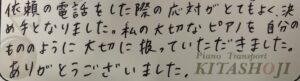 依頼の電話をした際の応対がとてもよく、決
め手となりました。私の大切なピアノを自分の
もののように大切に扱っていただきました。
ありがとうございました。
Piano Transport
KITASHOJI